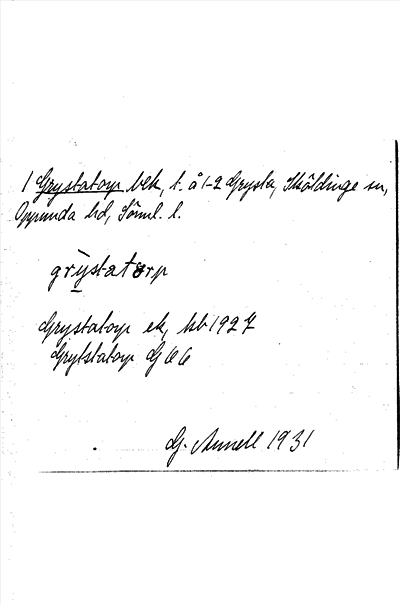 1 Grystatorp bek, t. å 1-2 Grysta, Sköldinge sn,
Oppunda hd, Sörml. l.
grystatorp
Grystatorp ek, hb 1927
Grytstatorp G 66
G. Annell 1931